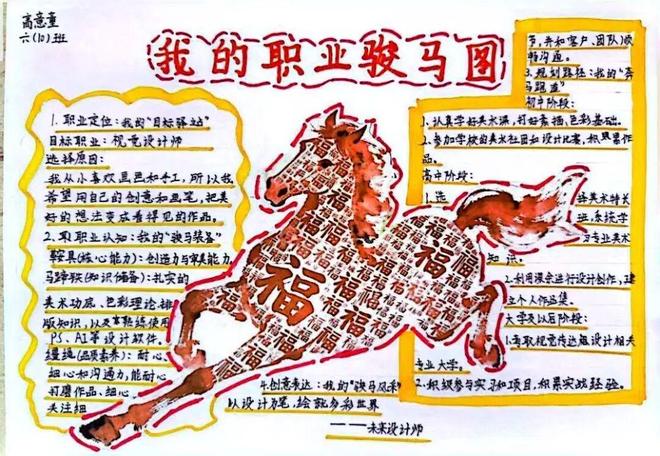 高意童
六(10)班
我的职业骏马图
1. 职业定位：我的“目标驿站”
目标职业：视觉设计师
选择原因：
我从小喜欢画画和手工，所以我
希望用自己的创意和画笔，把美
好的想法变成看得见的作品。
2. 职业认知：我的“骏马装备”
鞍具(核心能力)：创造力与审美能力
马蹄铁(知识储备)：扎实的
美术功底、色彩理论、排
版知识，以及熟练使用
PS、AI等设计软件。
缰绳(品质素养)：耐心、
细心和沟通力，能耐心
打磨作品、细心
关注细
节，并和客户、团队
沟通。
3. 规划路径：我的“奔
马跑道”
初中阶段：
1. 认真学好美术课，打好素描、色彩基础。
2. 参加学校的美术社团和设计比赛，积累作
品。
高中阶段：
1. 选择美术特长
班，系统学
习专业美术
知识。
2. 利用课余进行设计创作，建
立个人作品集。
大学及以后阶段：
1. 考取视觉传达设计相关
专业大学。
2. 积极参与实习和项目，积累实战经验。
4. 创意表达：我的“骏马风采”
以设计为笔，绘就多彩世界
——未来设计师
福
福